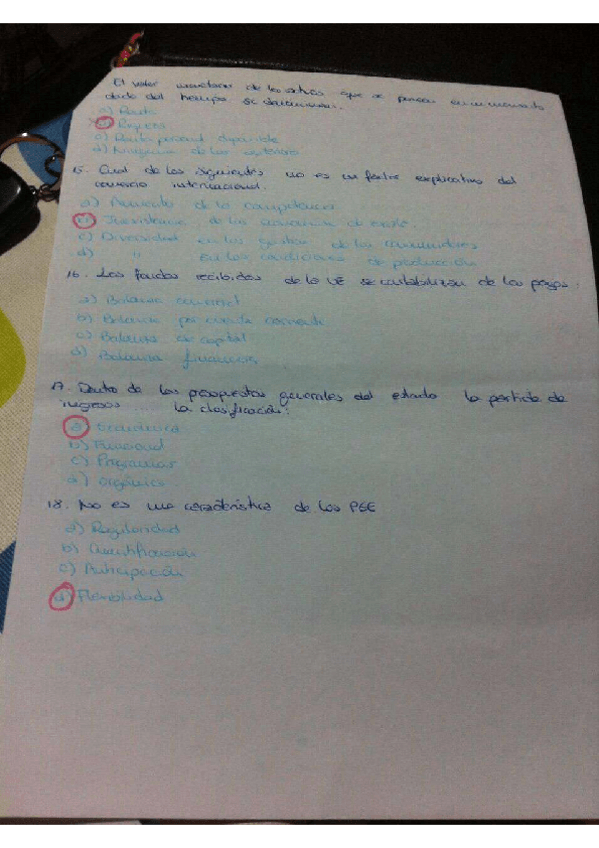 El valor monetario de los activos que se poseen en un momento
dado del tiempo se denomina:
a) Renta
b) Riqueza
c) Renta personal disponible
d)
15. Cual de los siguientes no es un factor explicativo del
comercio internacional.
a) Aumento de la competencia
b) Inexistencia de las economías de escala
c) Diversidad en los gustos de los consumidores
d) " en las condiciones de producción
16. Los fondos recibidos de la UE se contabilizan de los pagos:
a) Balanza comercial
b) Balanza por cuenta corriente
c) Balanza de capital
d) Balanza financiera
17. Dentro de los presupuestos generales del estado la partida de
ingresos la clasificación:
a) Económica
b) Funcional
c) Programas
d) Orgánica
18. No es una característica de los PGE
a) Regularidad
b) Cuantificación
c) Anticipación
d) Flexibilidad